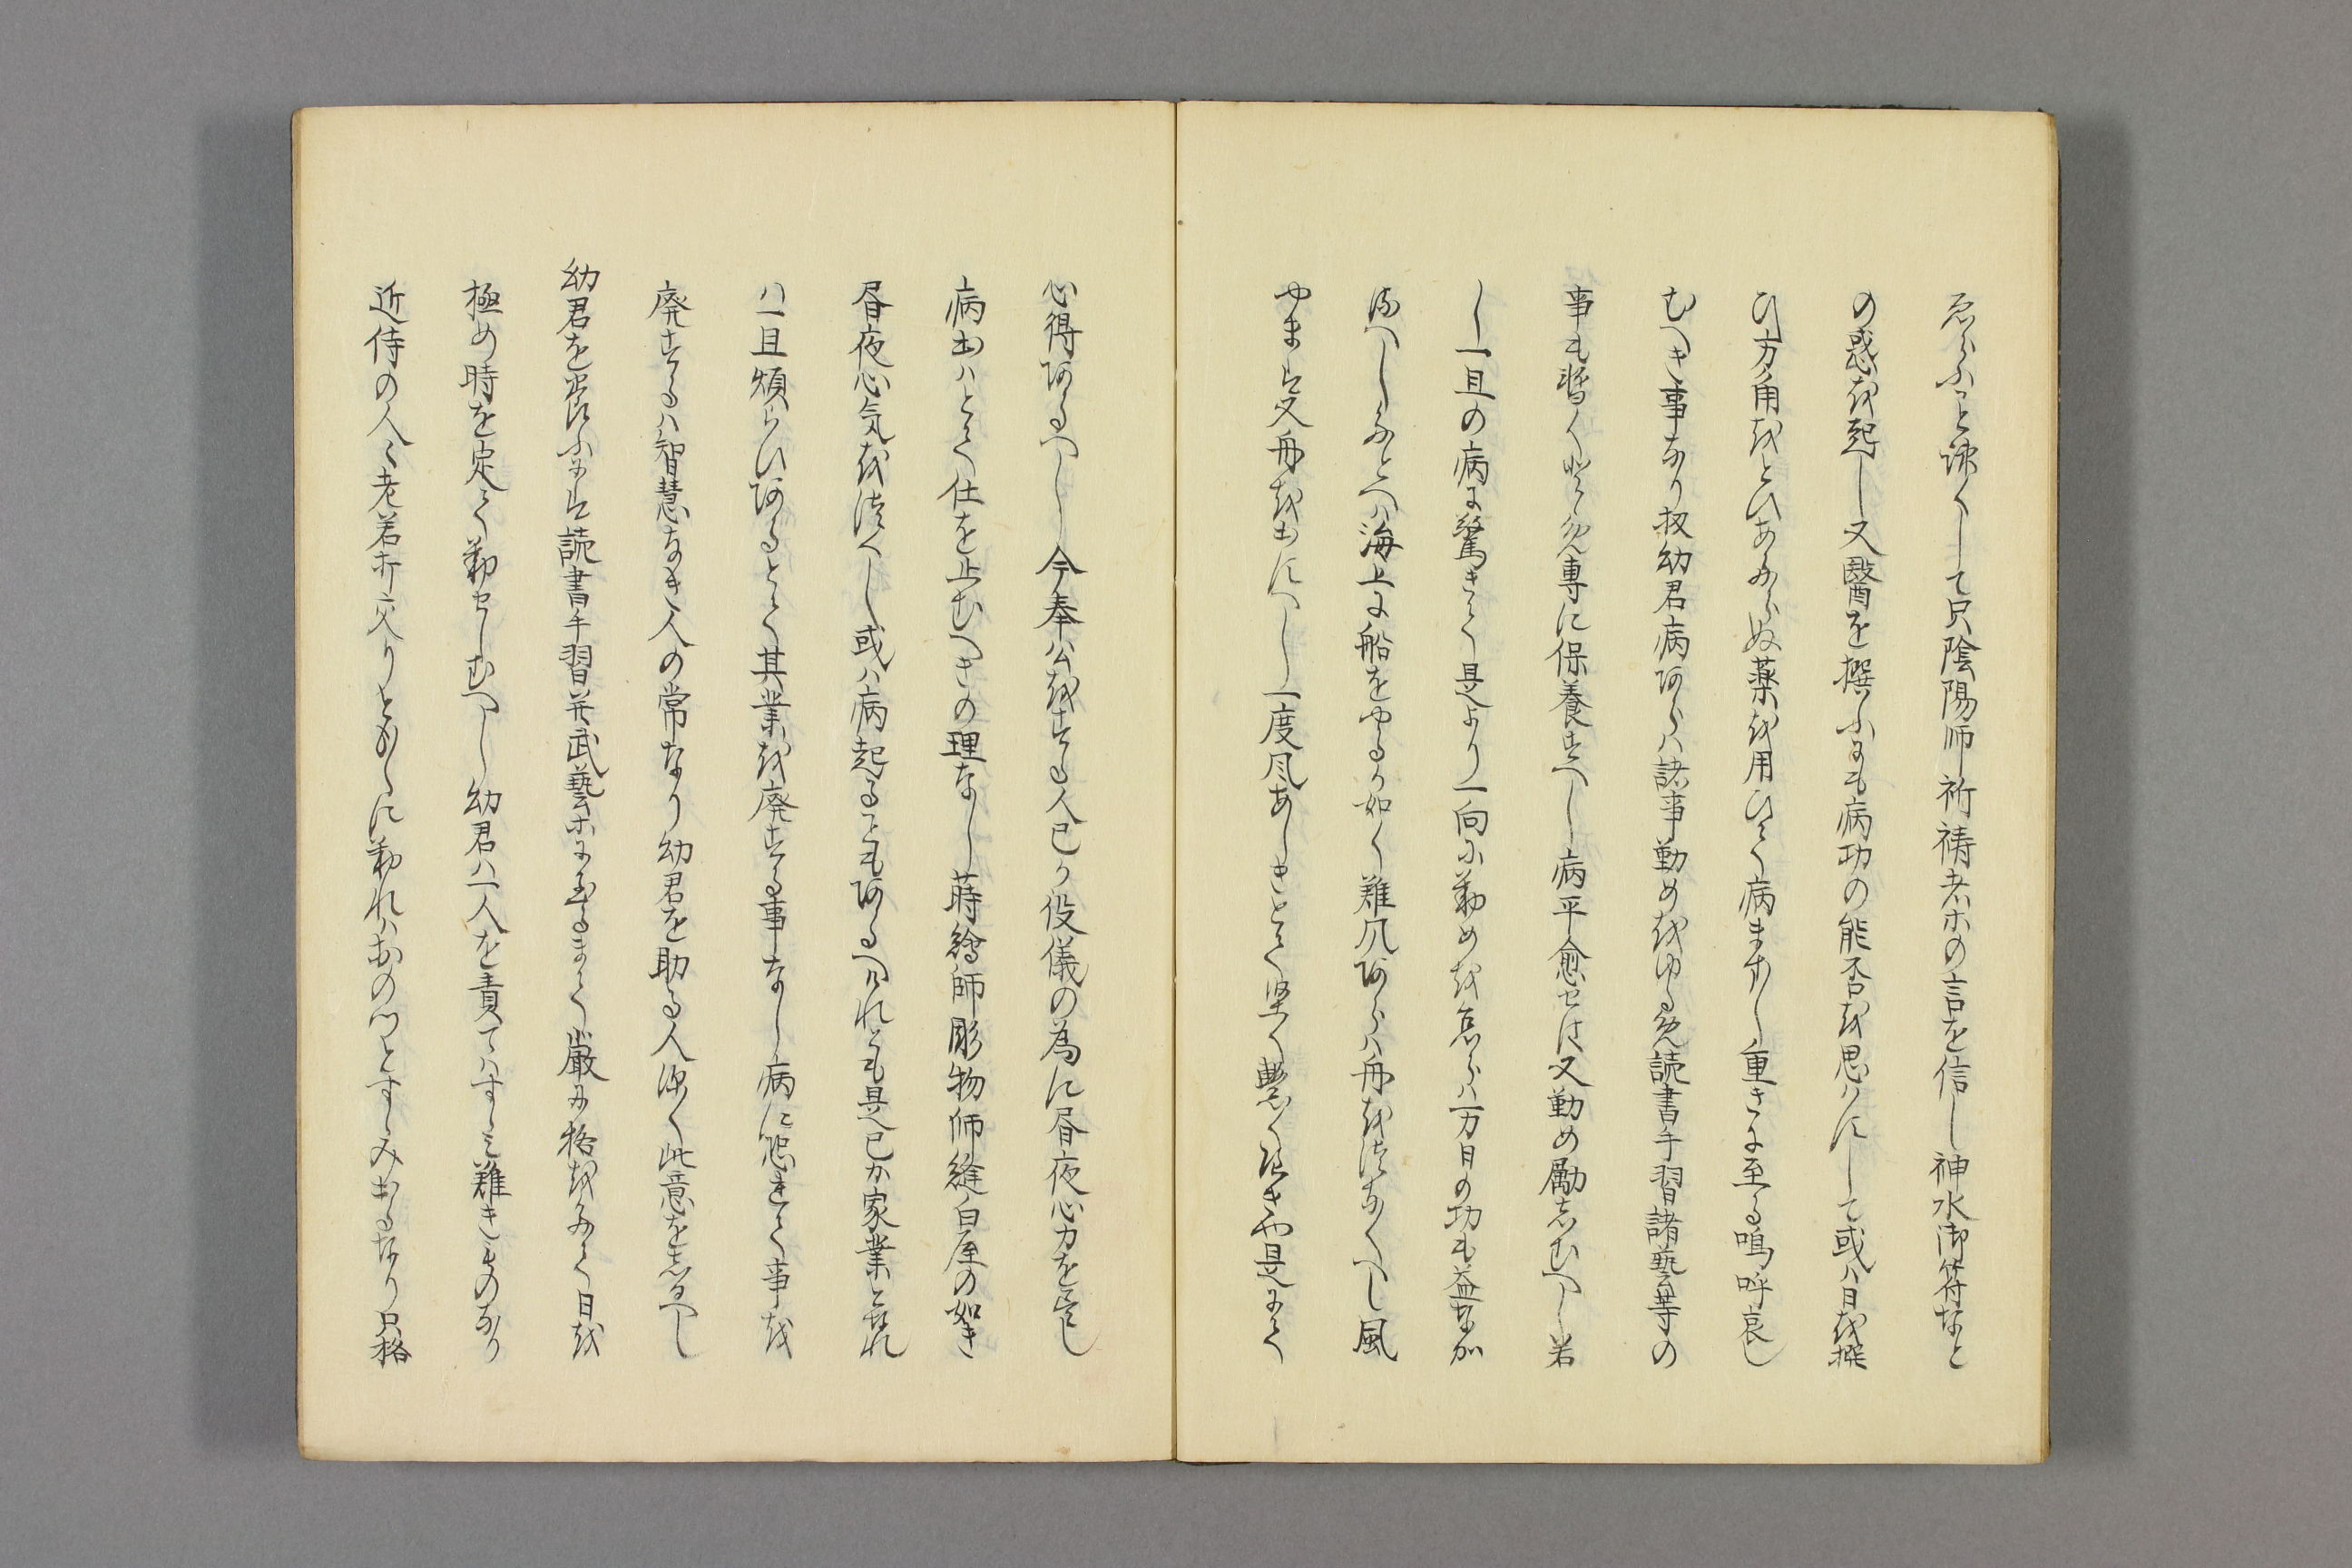 ゑらふこと疎くして只陰陽師祈祷者ホの言を信し神水御符なと
の惑を起し又醫を撰ふにも病功の能否を思ハにして或ハ日を撰
ひ方角をとひあるらぬ薬を用ひて病ますし重きに至る嗚呼哀し
むへき事なり扨幼君病あらハ諸事勤めをゆるめ読書手習諸藝等の
事も暫くやめ専に保養すへし病平愈せは又勤め勵志むへし若
し一旦の病に驚きて是より一向に勤めを怠らハ万日の功も益なか
るへしたとへハ海上に船をやるか如く難风あらハ舟を漕なくへし風
やまは又舟を出にへし一度風あしきとて梁く繋く置きや是にて
心得あるへし今奉公をする人己か役儀の為に昼夜心力を尽し
病出ハとて仕を止むへきの理なし蒔繪師彫物師縫白屋の如き
昼夜心気を漬くし或ハ病起ることもあるへけれとも是己か家業となれ
ハ一旦煩らひあるとて其業を廃する事なし病に恐れて事を
廃するハ智慧なき人の常なり幼君を助る人深く此意を志るへし
幼君を養ふには読書手習并武藝ホに至るまて厳に格をたて日を
極め時を定て勤せしむへし幼君ハ一人を責てハすゝミ難きものなり
近侍の人々老若打交りともゝに勤れハおのつとすゝみ出るなり只格